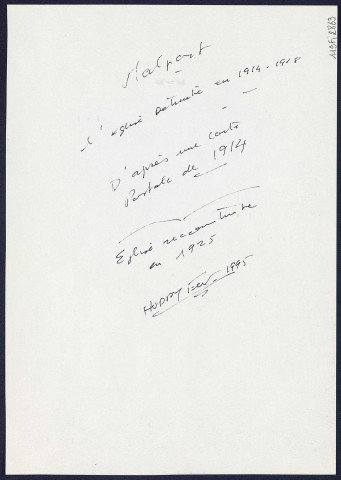 Malpart
l'église détruite en 1914-1918
D'après une carte
Postale de 1914
Eglise reconstruite
en 1925
HUDRY 1995
119Fi2863